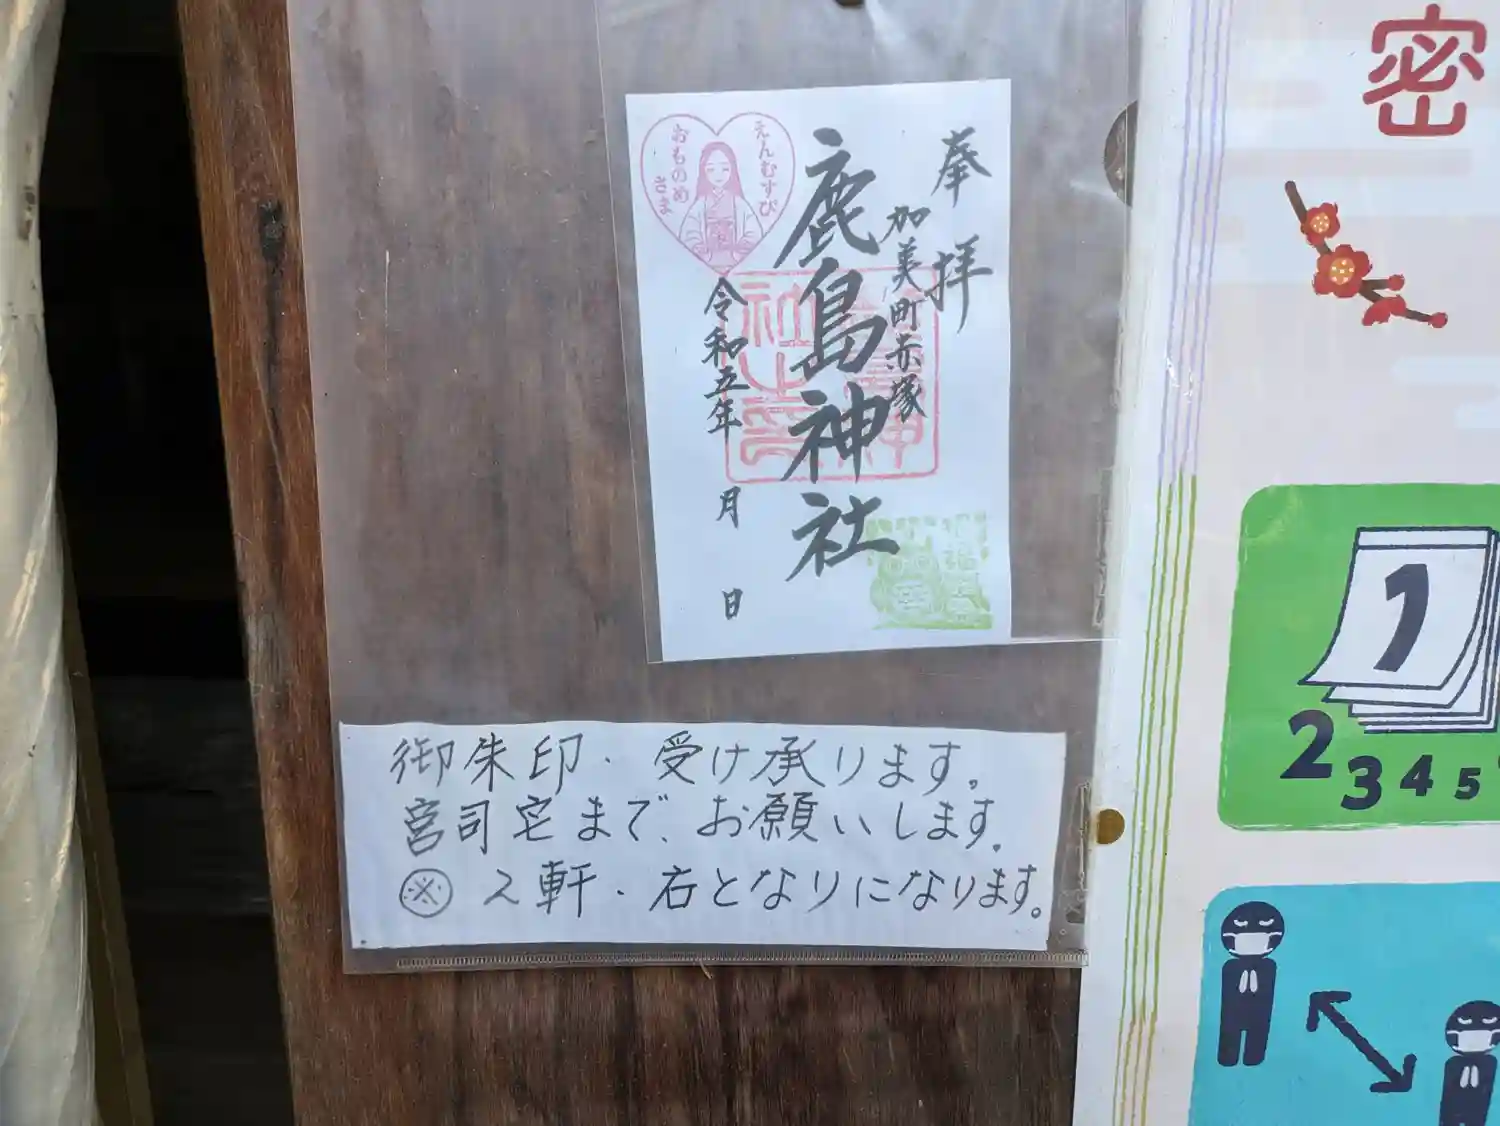 奉拝
加美町赤塚
鹿島神社
令和五年 月 日
えんむすび
おものめ
さま
御朱印・受け承ります。
宮司宅まで、お願いします。
※ 2軒・右となりになります。
密
1
2 3 4 5